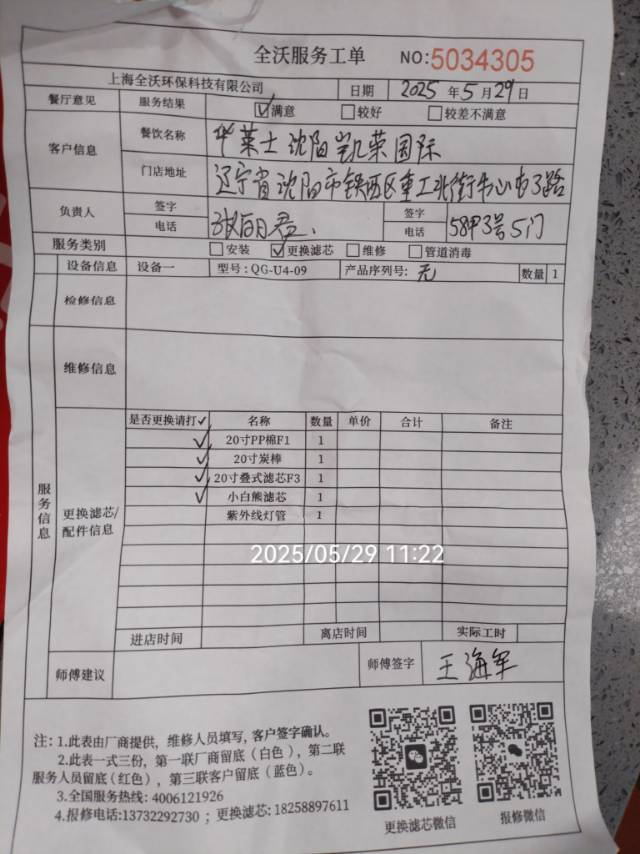 全沃服务工单 NO:5034305
上海全沃环保科技有限公司 日期 2025年5月29日
餐厅意见 服务结果 ☑满意 □较好 □较差不满意
客户信息 餐饮名称 华莱士沈阳凯荣国际
门店地址 辽宁省沈阳市铁西区重工北街
负责人 签字 签字
电话 电话 58甲3号5门
服务类别 □安装 ☑更换滤芯 □维修 □管道消毒
设备信息 设备一 型号:QG-U4-09 产品序列号:无 数量 1
检修信息
维修信息
服务信息
更换滤芯/配件信息
是否更换请打✓ 名称 数量 单价 合计 备注
✓ 20寸PP棉F1 1
✓ 20寸炭棒 1
✓ 20寸叠式滤芯F3 1
✓ 小白熊滤芯 1
紫外线灯管 1
2025/05/29 11:22
进店时间 离店时间 实际工时
师傅建议 师傅签字 王海军
注:1.此表由厂商提供，维修人员填写,客户签字确认。
2.此表一式三份，第一联厂商留底(白色)，第二联
服务人员留底(红色)，第三联客户留底(蓝色)。
3.全国服务热线: 4006121926
4.报修电话:13732292730 ; 更换滤芯: 18258897611
更换滤芯微信 报修微信